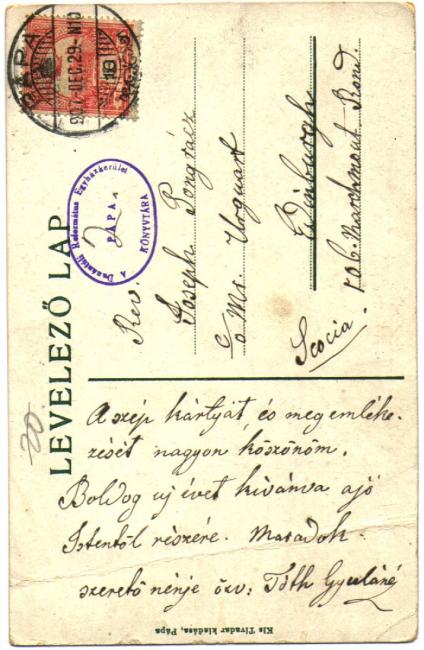 LEVELEZŐ LAP
PÁPA
927 DEC. 29. N10
A Dunántúli Református Egyházkerület
PÁPA
KÖNYVTÁRA
20
Rev.
Joseph Pongrácz
c/o Mr. Urquart
Edinburgh
Marchmont Road.
Scocia.
A szép kártyját, és megemléke-
zését nagyon köszönöm.
Boldog uj évet kivánva a jó
Istentől részére. Maradok.
szerető nénje özv: Tóth Gyuláné
Kis Tivadar kiadása, Pápa